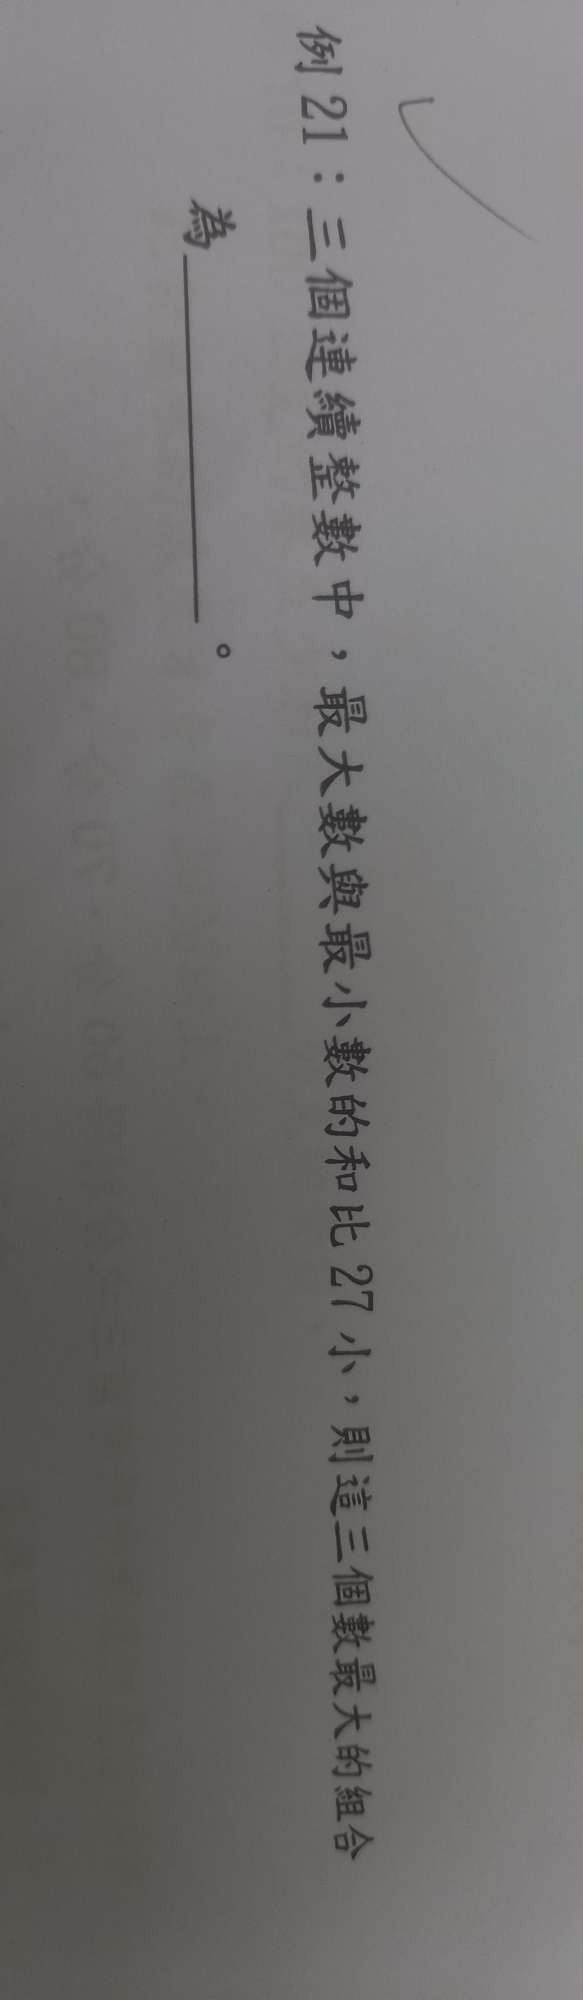 例 21：三個連續整數中，最大數與最小數的和比 27 小，則這三個數最大的組合
為＿＿＿＿＿＿。